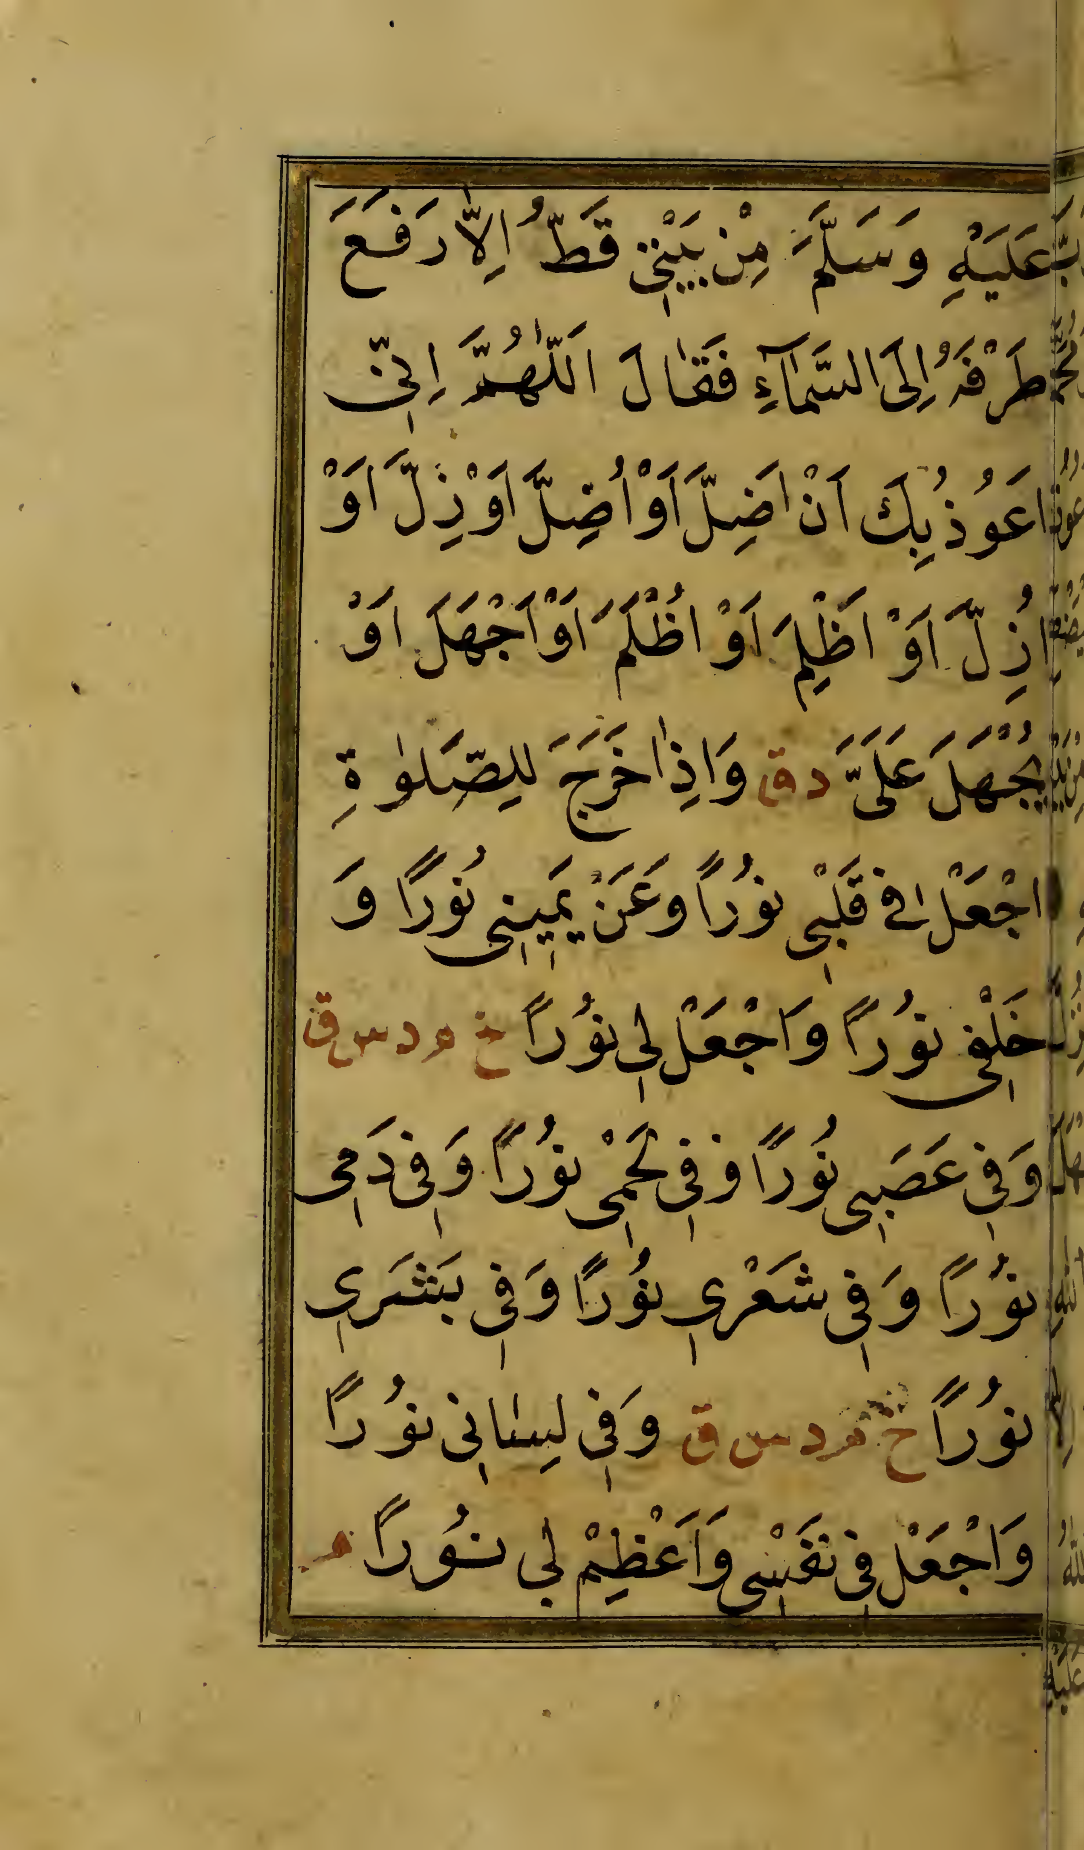 عَلَيْهِ وَسَلَّمَ مِنْ بَيْتِي قَطُّ اِلاَّ رَفَعَ
طَرْفَهُ اِلَى السَّمَآءِ فَقَالَ اَللّٰهُمَّ اِنِّى
اَعُوذُ بِكَ اَنْ اَضِلَّ اَوْ اُضِلَّ اَوْ زِلَّ اَوْ
اُزِلَّ اَوْ اَظْلِمَ اَوْ اُظْلَمَ اَوْ اَجْهَلَ اَوْ
يُجْهَلَ عَلَىَّ د ق وَاِذَا خَرَجَ لِلصَّلٰوةِ
اجْعَلْ فى قَلْبِى نُورًا وَعَنْ يَمِينِى نُورًا وَ
خَلْفِى نُورًا وَاجْعَلْ لِى نُورًا خ م د س ق
وَفِى عَصَبِى نُورًا وَفِى لَحْمِى نُورًا وَفِى دَمِى
نُورًا وَفِى شَعْرِى نُورًا وَفِى بَشَرِى
نُورًا خ م د س ق وَفِى لِسَانِى نُورًا
وَاجْعَلْ فِى نَفْسِى وَاَعْظِمْ لِى نُورًا م